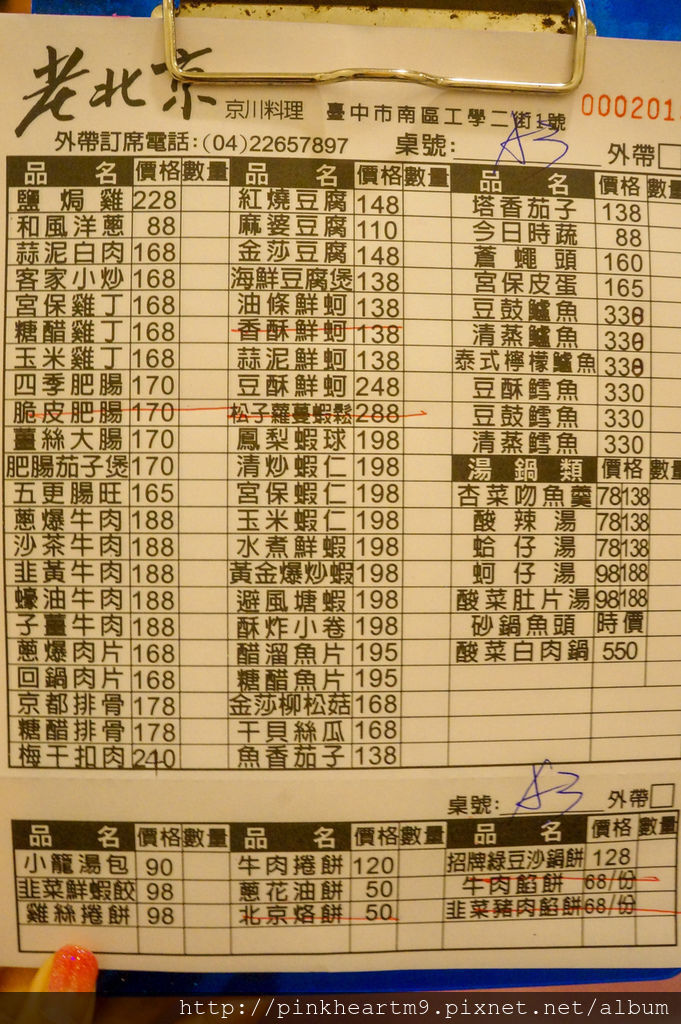 老北京 京川料理 臺中市南區工學二街1號 000201
外帶訂席電話:(04)22657897 桌號: A3 外帶
品名 價格 數量 品名 價格 數量 品名 價格 數量
鹽焗雞 228 紅燒豆腐 148 塔香茄子 138
和風洋蔥 88 麻婆豆腐 110 今日時蔬 88
蒜泥白肉 168 金莎豆腐 148 蒼蠅頭 160
客家小炒 168 海鮮豆腐煲 138 宮保皮蛋 165
宮保雞丁 168 油條鮮蚵 138 豆鼓鱸魚 330
糖醋雞丁 168 香酥鮮蚵 138 清蒸鱸魚 330
玉米雞丁 168 蒜泥鮮蚵 138 泰式檸檬鱸魚 330
四季肥腸 170 豆酥鮮蚵 248 豆酥鱈魚 330
脆皮肥腸 170 松子蘿蔓蝦鬆 288 豆鼓鱈魚 330
薑絲大腸 170 鳳梨蝦球 198 清蒸鱈魚 330
肥腸茄子煲 170 清炒蝦仁 198 湯鍋類 價格 數量
五更腸旺 165 宮保蝦仁 198 杏菜吻魚羹 78 138
蔥爆牛肉 188 玉米蝦仁 198 酸辣湯 78 138
沙茶牛肉 188 水煮鮮蝦 198 蛤仔湯 78 138
韭黃牛肉 188 黃金爆炒蝦 198 蚵仔湯 98 188
蠔油牛肉 188 避風塘蝦 198 酸菜肚片湯 98 188
子薑牛肉 188 酥炸小卷 198 砂鍋魚頭 時價
蔥爆肉片 168 醋溜魚片 195 酸菜白肉鍋 550
回鍋肉片 168 糖醋魚片 195
京都排骨 178 金莎柳松菇 168
糖醋排骨 178 干貝絲瓜 168
梅干扣肉 210 魚香茄子 138
桌號: A3 外帶
品名 價格 數量 品名 價格 數量 品名 價格 數量
小籠湯包 90 牛肉捲餅 120 招牌綠豆沙鍋餅 128
韭菜鮮蝦餃 98 蔥花油餅 50 牛肉餡餅 68/份
雞絲捲餅 98 北京烙餅 50 韭菜豬肉餡餅 68/份
http://pinkheartm9.pixnet.net/album